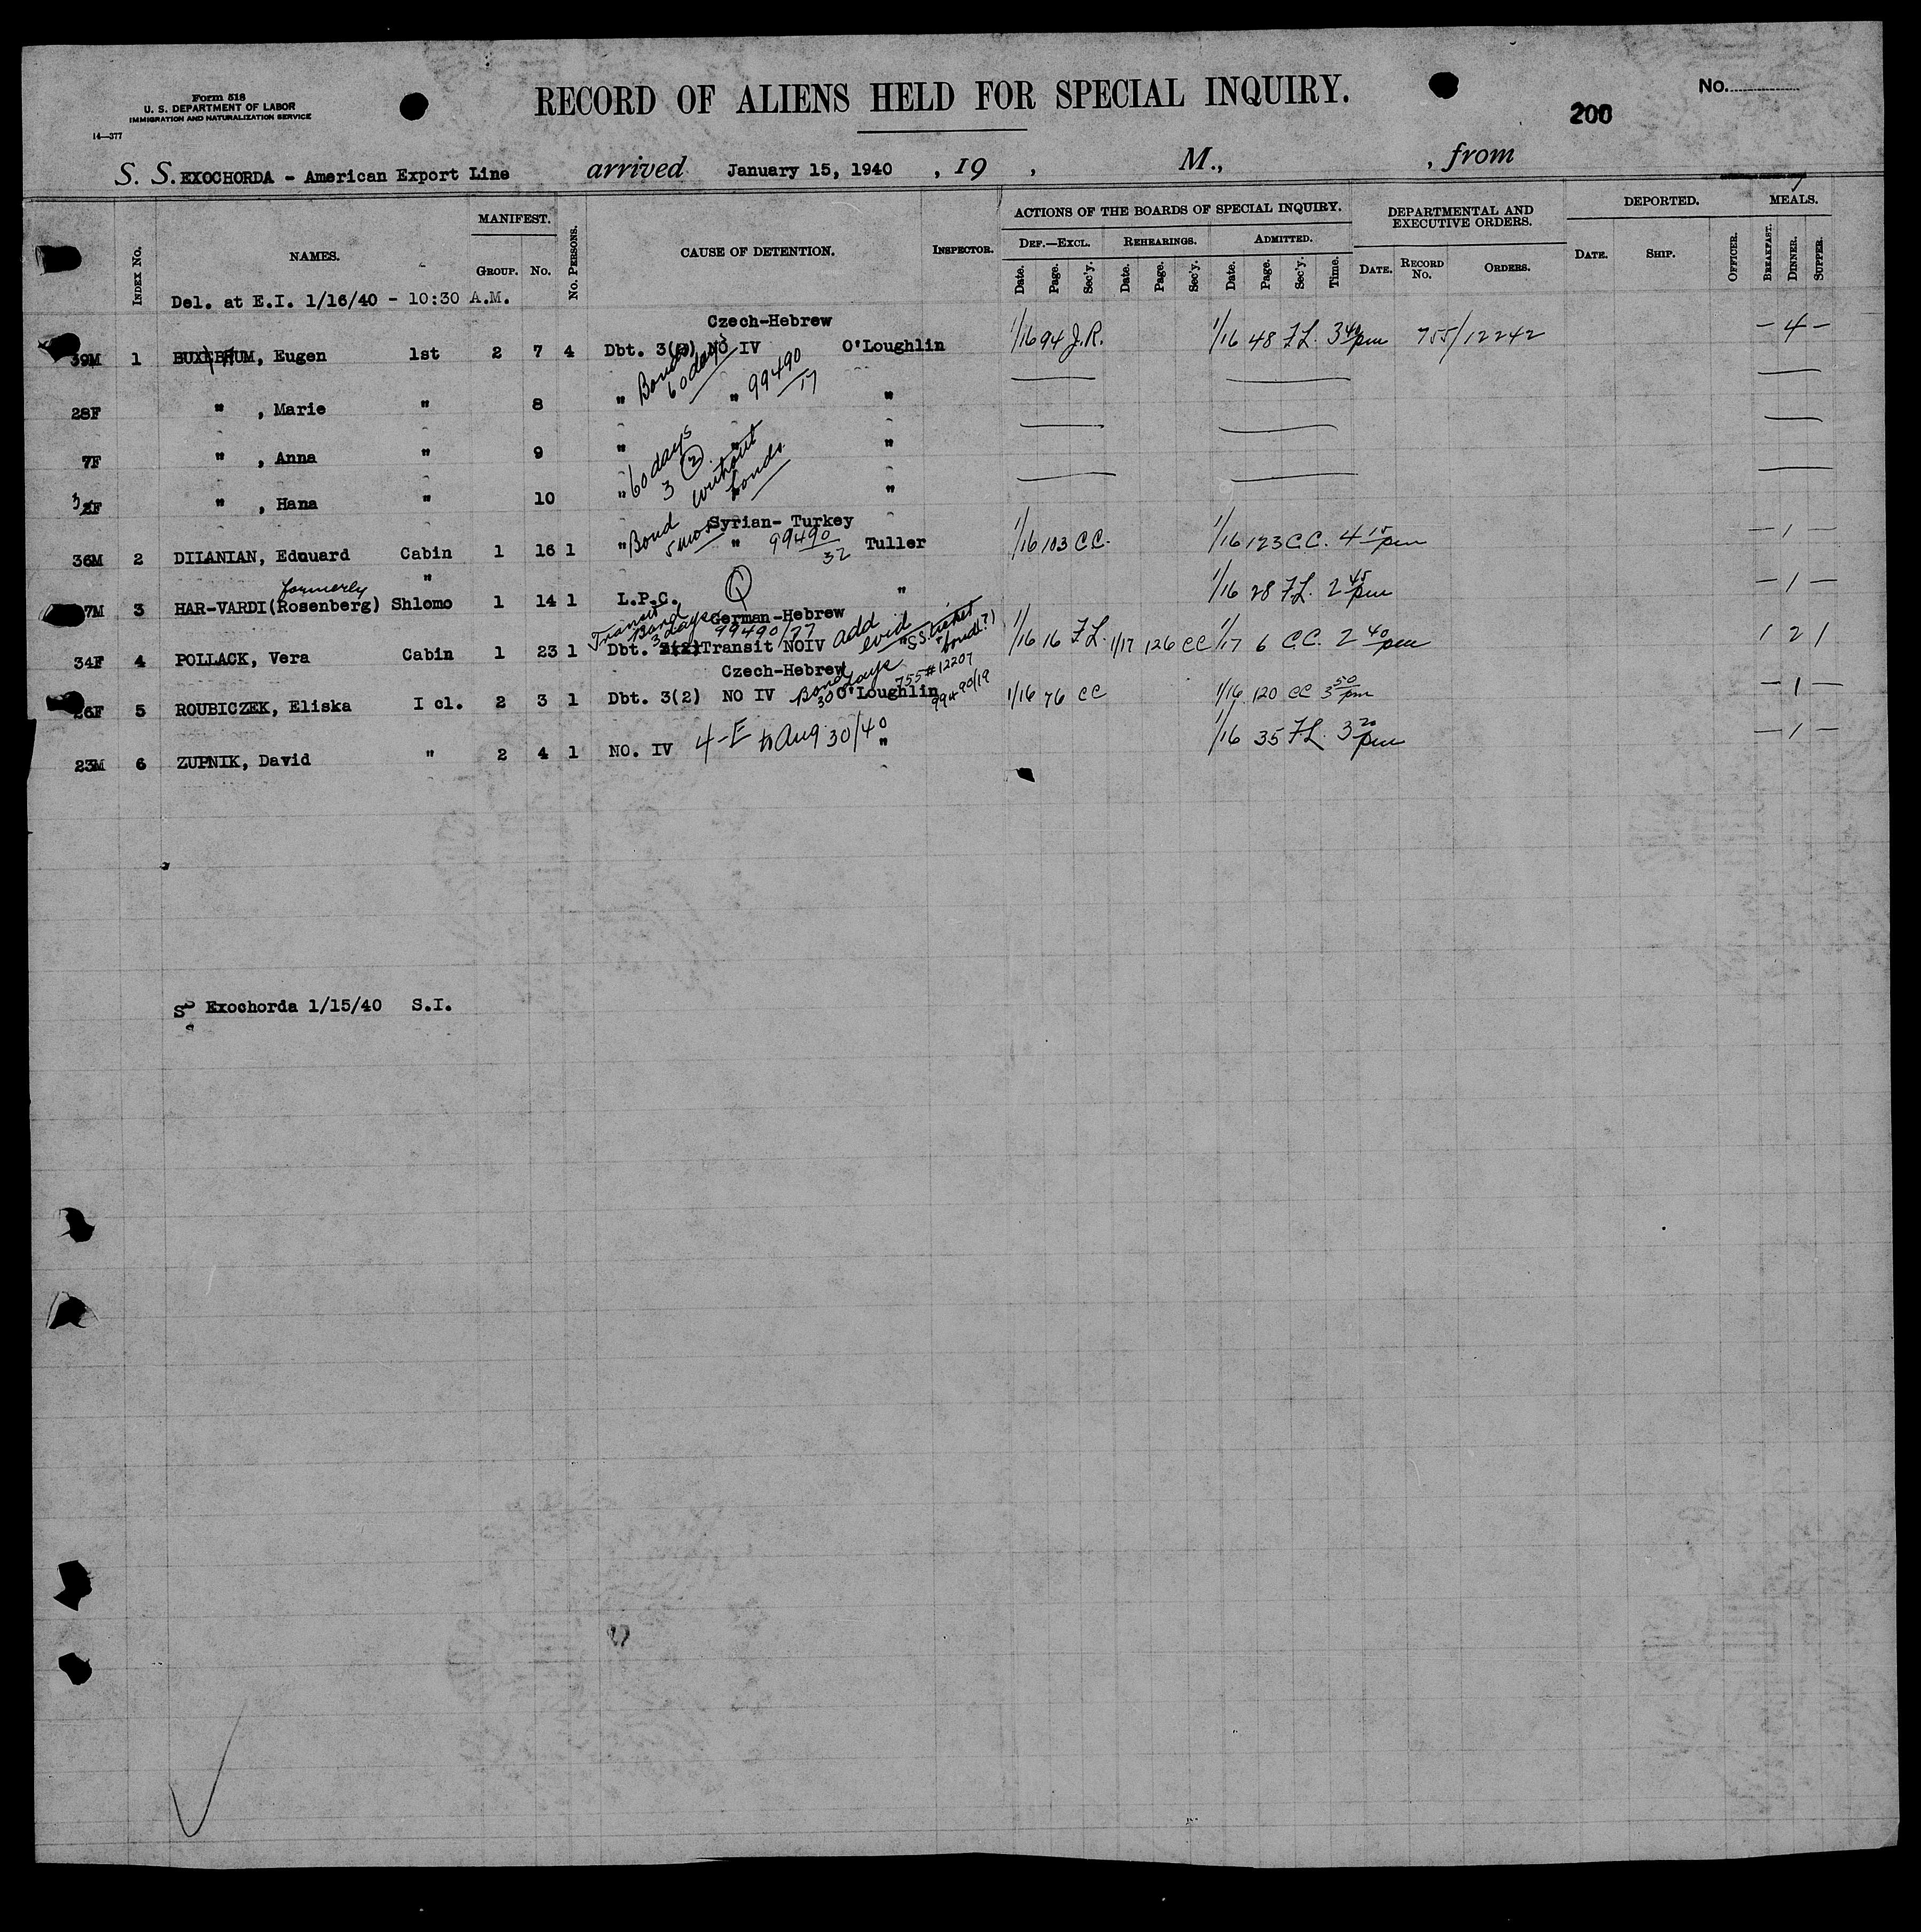 Form 518
U. S. DEPARTMENT OF LABOR
IMMIGRATION AND NATURALIZATION SERVICE
14—377
RECORD OF ALIENS HELD FOR SPECIAL INQUIRY.
No.
200
S. S. EXOCHORDA - American Export Line arrived January 15, 1940 , 19 , M., , from
INDEX No. NAMES. MANIFEST. GROUP. No. No. PERSONS. CAUSE OF DETENTION. INSPECTOR. ACTIONS OF THE BOARDS OF SPECIAL INQUIRY. DEF.—EXCL. Date. Page. Sec'y. REHEARINGS. Date. Page. Sec'y. ADMITTED. Date. Page. Sec'y. Time. DEPARTMENTAL AND EXECUTIVE ORDERS. DATE. RECORD No. ORDERS. DEPORTED. DATE. SHIP. OFFICER. MEALS. BREAKFAST. DINNER. SUPPER.
Del. at E.I. 1/16/40 - 10:30 A.M.
Czech-Hebrew
39M 1 BUXBAUM, Eugen 1st 2 7 4 Dbt. 3(2) NO IV O'Loughlin 1/16 94 J.R. 1/16 48 F.L. 3 40 pm 755/12242 — 4 —
Bond 60 days 99490/17
28F " , Marie " 8 " " "
7F " , Anna " 9 " " "
60 days 3(2) without bonds
3F " , Hana " 10 " "
Syrian- Turkey
36M 2 DIIANIAN, Edouard Cabin 1 16 1 " Bond 5 mos " 99490/32 Tuller 1/16 103 C.C. 1/16 123 C.C. 4 15 pm — 1 —
formerly "
7M 3 HAR-VARDI (Rosenberg) Shlomo 1 14 1 L.P.C. Q " 1/16 28 F.L. 2 45 pm — 1 —
Transit Bond 3 days German-Hebrew
99490/77 add evid "S.S. ticket + bond(?)
34F 4 POLLACK, Vera Cabin 1 23 1 Dbt. Transit NOIV 1/16 16 F.L. 1/17 126 CC 1/17 6 C.C. 2 40 pm 1 2 1
Czech-Hebrew
26F 5 ROUBICZEK, Eliska I cl. 2 3 1 Dbt. 3(2) NO IV Bond 30 days O'Loughlin 755#12207 99490/19 1/16 76 CC 1/16 120 CC 3 50 pm — 1 —
23M 6 ZUPNIK, David " 2 4 1 NO. IV 4-E to Aug 30/40 " 1/16 35 F.L. 3 20 pm — 1 —
SS Exochorda 1/15/40 S.I.